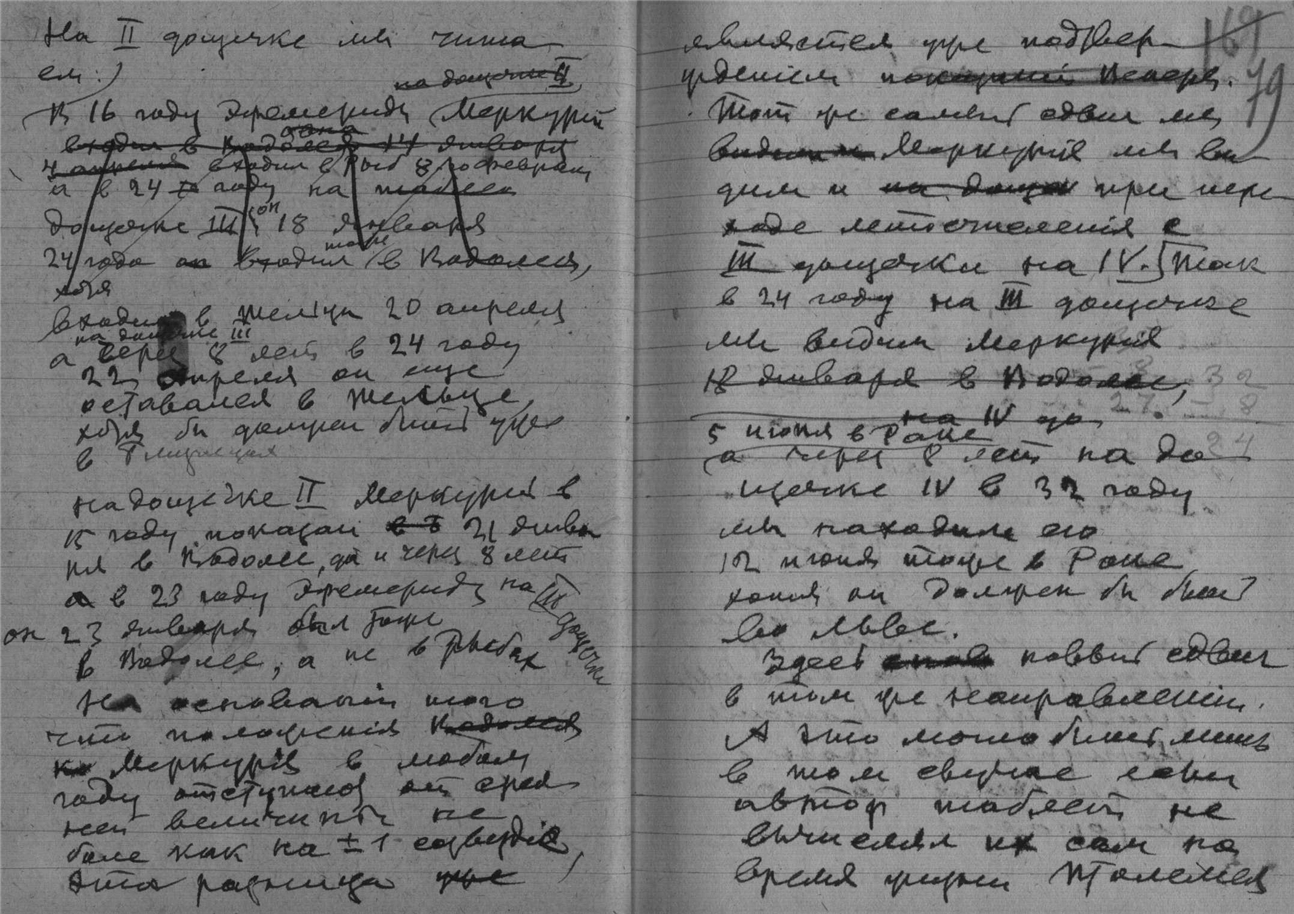 На II дощечке мы чита
ем:)
на дощечке II
В 16 году Эфемерид Меркурий
входил в Водолея 14 января
4 апреля входил в Рыб 8 февраля
а в 24 году на
дощечке III он 18 января
24 года он входил тоже в Водолея,
хотя
входил в Тельца 20 апреля
на дощечке III
а через 8 лет в 24 году
22 апреля он еще
оставался в Тельце,
хотя бы должен быть уже
в Близнецах
На дощечке II Меркурий в
15 году показан в 21 янва
ря в Водолее, да и через 8 лет
а в 23 году Эфемерид на III дощечке
он 23 января был тоже
в Водолее, а не в Рыбах
На основании того
что положения Водолея
Меркурия в любом
году отступают от сред
ней величины не
более как на ±1 созвездие,
эта разница уже
169
79
является уже подтвер
ждением показаний Венеры.
Тот же самый сдвиг мы
видим и Меркурия мы ви
дим и на дощеч при пере
ходе летосчисления с
III дощечки на IV. [Так
в 24 году на III дощечке
мы видим Меркурия
18 января в Водолее,
на IV до
5 июня в Раке
а через 8 лет на до
щечке IV в 32 году
мы находим его
12 июня тоже в Раке
хотя он должен бы быть
во Льве.
Здесь новый сдвиг
в том же направлении.
А это могло быть лишь
в том случае если
автор таблет не
вычислял их сам на
время жизни Птолемея